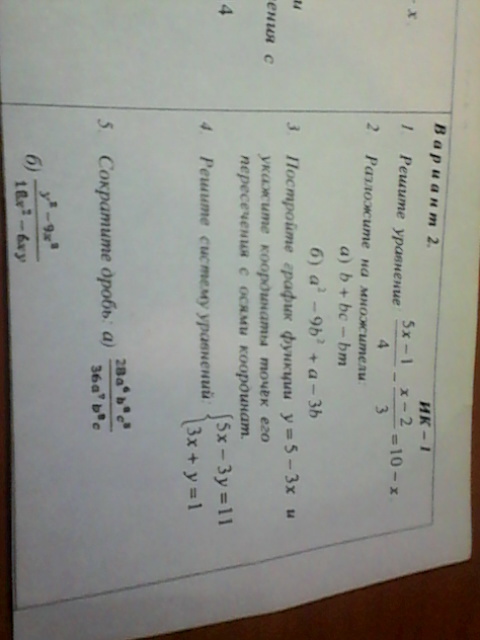 - x
и
ения с
4
Вариант 2. ИК – 1
1. Решите уравнение: (5x – 1)/4 – (x – 2)/3 = 10 – x
2 Разложите на множители:
а) b + bc – bm
б) a² – 9b² + a – 3b
3 Постройте график функции y = 5 – 3x и
укажите координаты точек его
пересечения с осями координат.
4 Решите систему уравнений: {5x – 3y = 11
{3x + y = 1
5. Сократите дробь: а)
б) (y² – 9x²)/(18x² – 6xy)